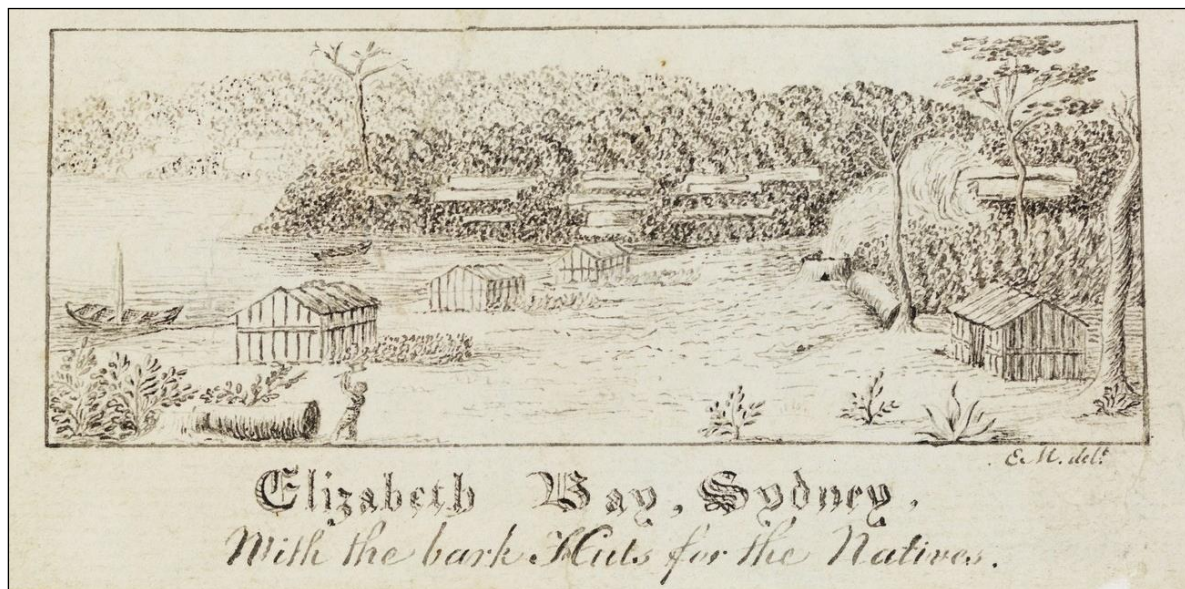 E. M. delt.
Elizabeth Bay, Sydney.
With the bark Huts for the Natives.